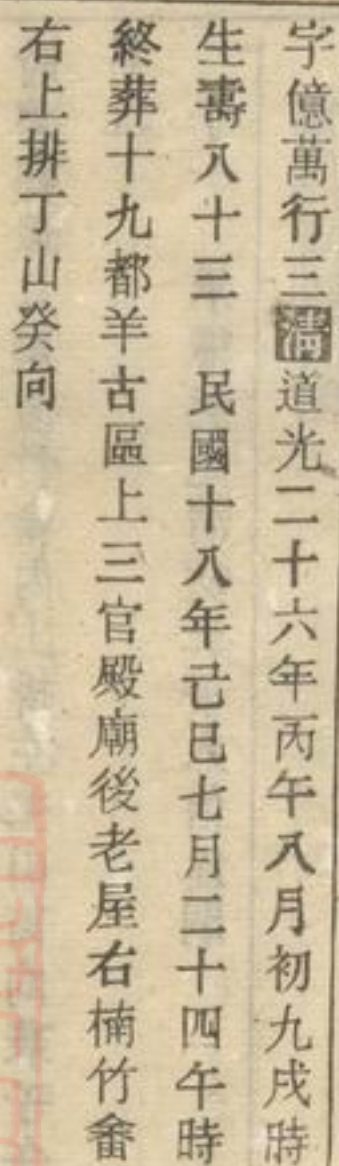 字億萬行三清道光二十六年丙午八月初九戌時
生壽八十三 民國十八年己巳七月二十四午時
終葬十九都羊古區上三官殿廟後老屋右楠竹畬
右上排丁山癸向